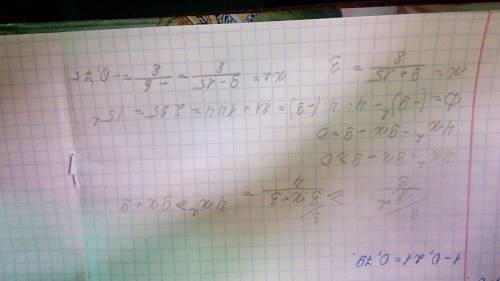 1-0,21=0,79.
x²/3 ≥ (3x+3)/4 = 4x² ≥ 9x+9
4x² - 9x - 9 ≥ 0
4x² - 9x - 9 = 0
D = (-9)² - 4·4·(-9) = 81+144 = 225 = 15²
x₁ = (9+15)/8 = 3 x₂ = (9-15)/8 = -6/8 = -0,75